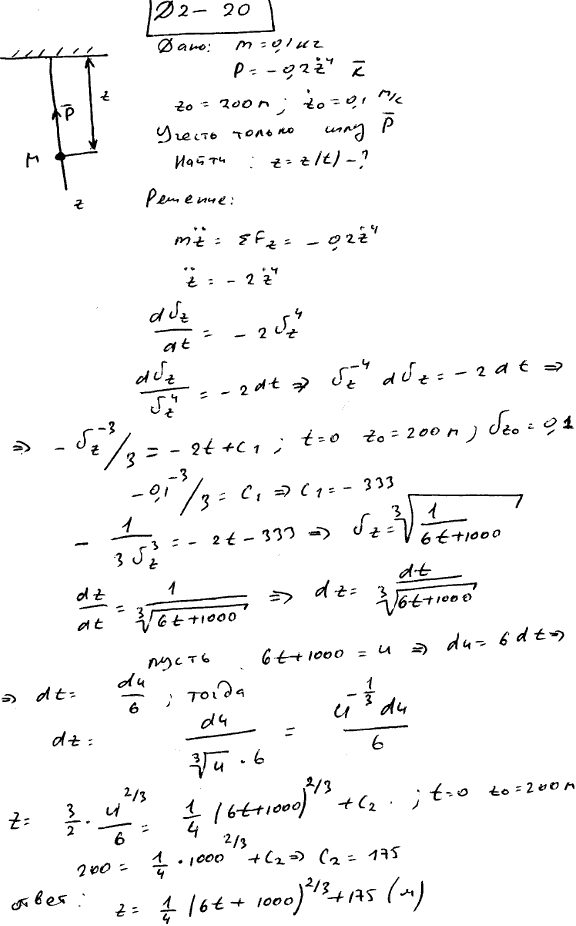 Д2-20
Дано: m = 0,1 кг
P = -0,2ż⁴ k̄
z₀ = 200 м; ż₀ = 0,1 м/с
Учесть только силу P̄
Найти: z = z(t) - ?
z
P̄
M
z
Решение:
mz̈ = ΣF_z = -0,2ż⁴
z̈ = -2ż⁴
dv_z/dt = -2v_z⁴
dv_z/v_z⁴ = -2dt ⇒ v_z⁻⁴ dv_z = -2dt ⇒
⇒ -v_z⁻³/3 = -2t + C₁; t=0 z₀ = 200 м; v_z₀ = 0,1
-0,1⁻³/3 = C₁ ⇒ C₁ = -333
-1/(3v_z³) = -2t - 333 ⇒ v_z = ∛(1/(6t+1000))
dz/dt = 1/∛(6t+1000) ⇒ dz = dt/∛(6t+1000)
пусть 6t+1000 = u ⇒ du = 6dt ⇒
⇒ dt = du/6; тогда
dz = du/(∛u · 6) = u^(-1/3) du/6
z = 3/2 · u^(2/3)/6 = 1/4 (6t+1000)^(2/3) + C₂; t=0 z₀ = 200 м
200 = 1/4 · 1000^(2/3) + C₂ ⇒ C₂ = 175
ответ: z = 1/4 (6t + 1000)^(2/3) + 175 (м)